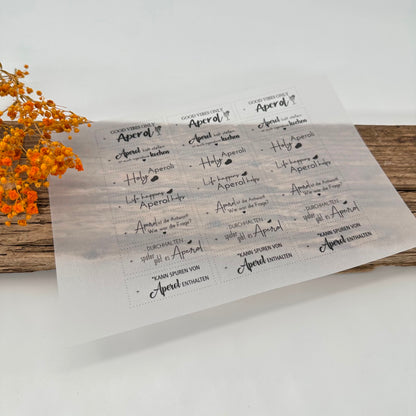 GOOD VIBES ONLY
Aperol
GOOD VIBES ONLY
Aperol
GOOD VIBES ONLY
Aperol
Aperol statt
kuchen
Aperol statt
kuchen
Aperol statt
kuchen
Holy Aperol
Holy Aperol
Holy Aperol
Life happens
Aperol helps
Life happens
Aperol helps
Life happens
Aperol helps
Aperol ist die Antwort
Wie war die Frage?
Aperol ist die Antwort
Wie war die Frage?
Aperol ist die Antwort
Wie war die Frage?
DURCHHALTEN
später gibt es Aperol
DURCHHALTEN
später gibt es Aperol
DURCHHALTEN
später gibt es Aperol
*KANN SPUREN VON
Aperol ENTHALTEN
*KANN SPUREN VON
Aperol ENTHALTEN
*KANN SPUREN VON
Aperol ENTHALTEN